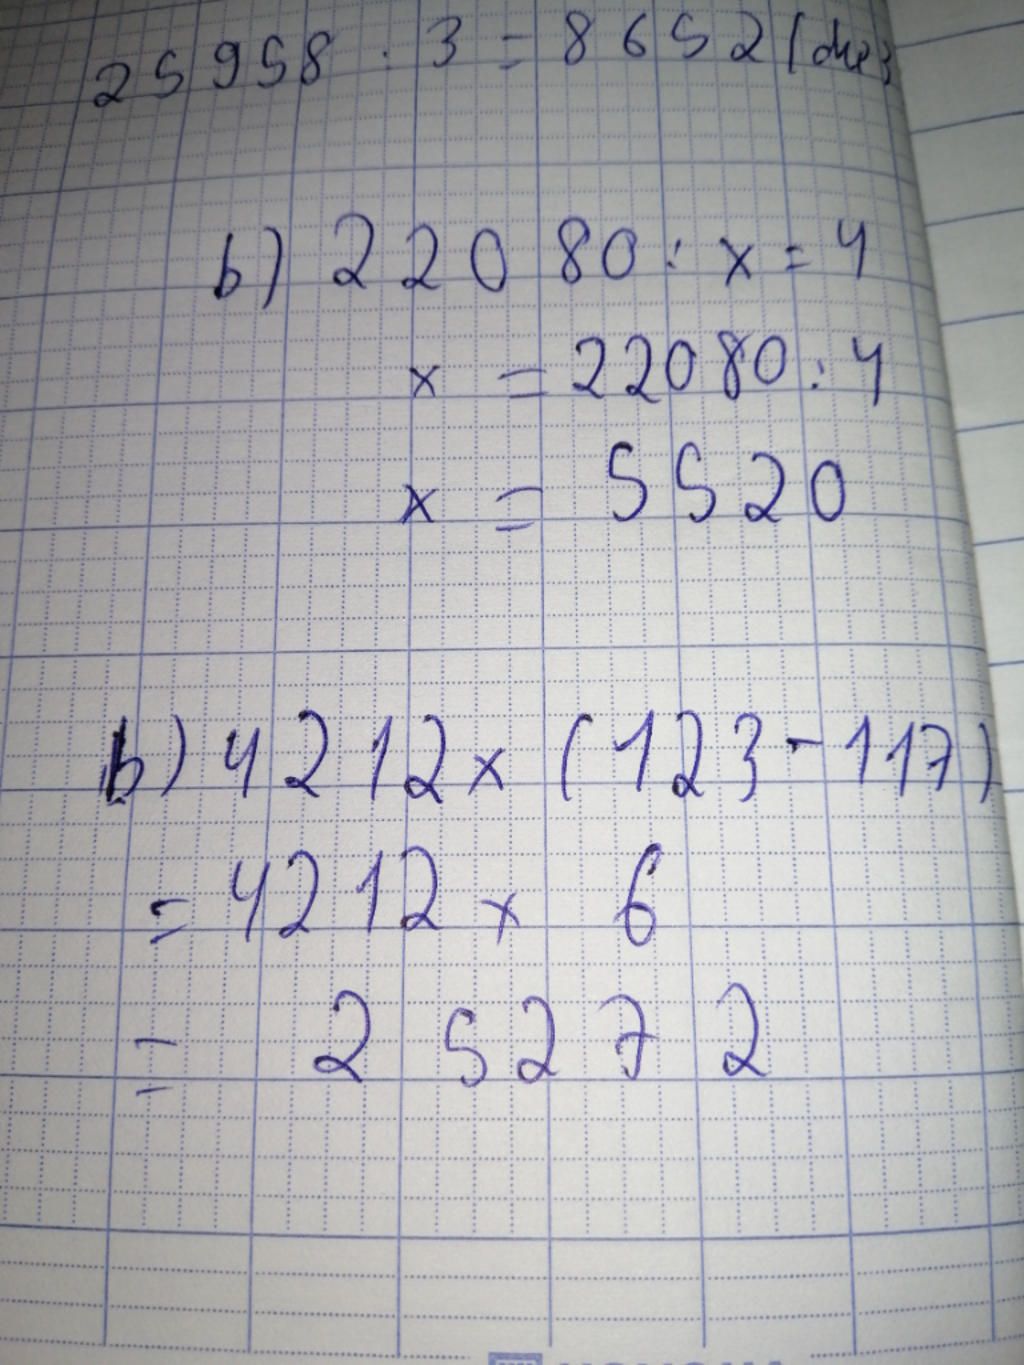 25958 : 3 = 8652 (dư
b) 22080 : x = 4
x = 22080 : 4
x = 5520
b) 4212 x (123 - 117)
= 4212 x 6
= 25272